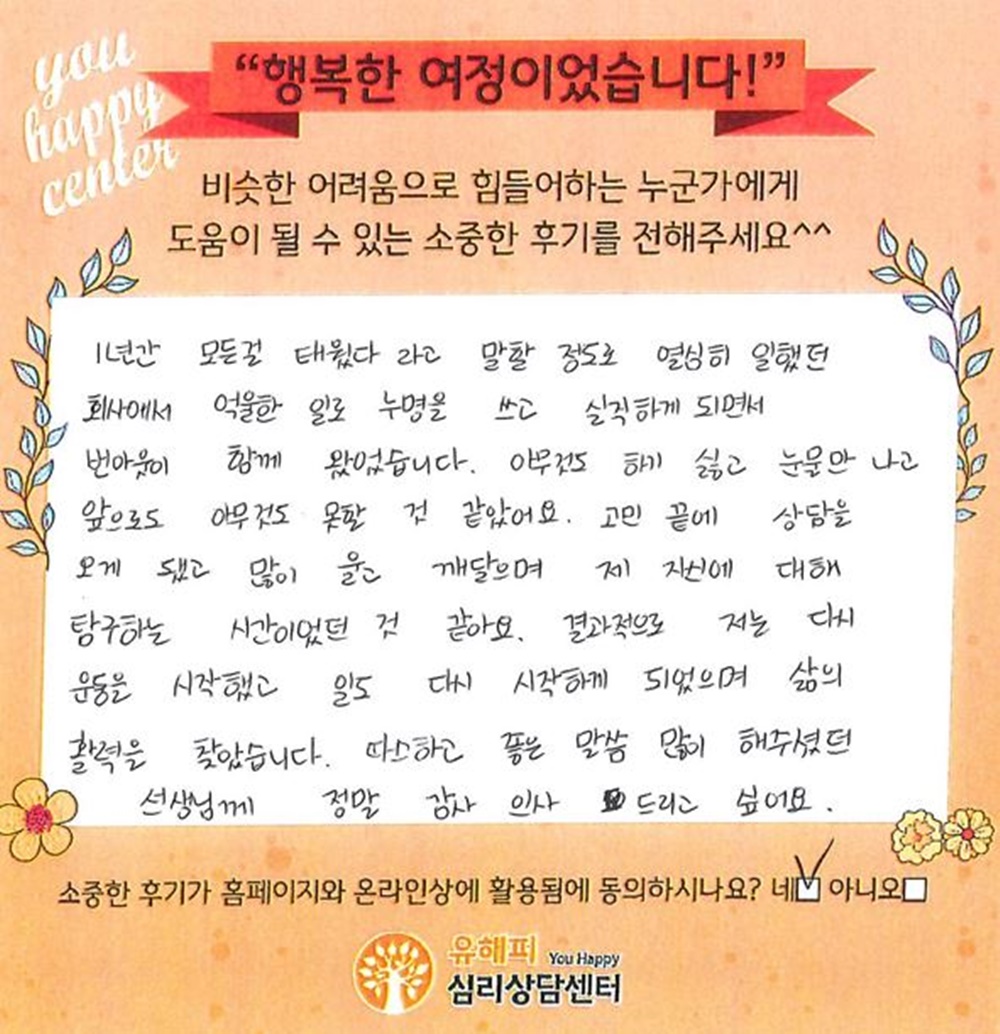 you
happy
center
“행복한 여정이었습니다!”
비슷한 어려움으로 힘들어하는 누군가에게
도움이 될 수 있는 소중한 후기를 전해주세요^^
1년간 모든걸 태웠다 라고 말할 정도로 열심히 일했던
회사에서 억울한 일로 누명을 쓰고 실직하게 되면서
번아웃이 함께 왔었습니다. 아무것도 하기 싫고 눈물만 나고
앞으로도 아무것도 못할 것 같았어요. 고민 끝에 상담을
오게 됐고 많이 울고 깨달으며 제 자신에 대해
탐구하는 시간이었던 것 같아요. 결과적으로 저는 다시
운동을 시작했고 일도 다시 시작하게 되었으며 삶의
활력을 찾았습니다. 따스하고 좋은 말씀 많이 해주셨던
선생님께 정말 감사 인사 드리고 싶어요.
소중한 후기가 홈페이지와 온라인상에 활용됨에 동의하시나요? 네 아니오
유해피 You Happy
심리상담센터